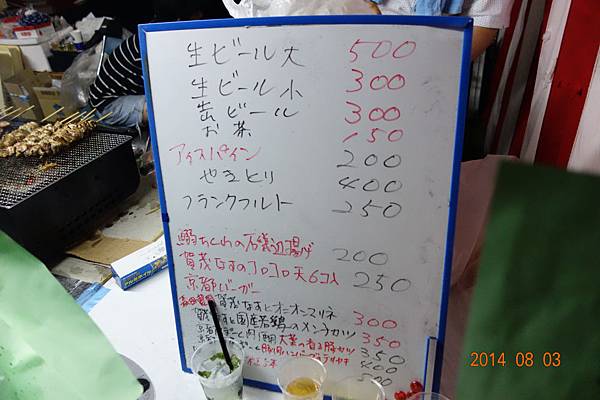 生ビール大 500
生ビール小 300
缶ビール 300
お茶 150
アイスパイン 200
やきとり 400
フランクフルト 250
鰯ちくわの石垣揚げ 200
賀茂なすのコロコロ天6コ入 250
京都バーガー
賀茂なすとオニオンマリネ 300
国産若鶏のメンチカツ 350
大葉の香る豚カツ 350
400
500
2014 08 03